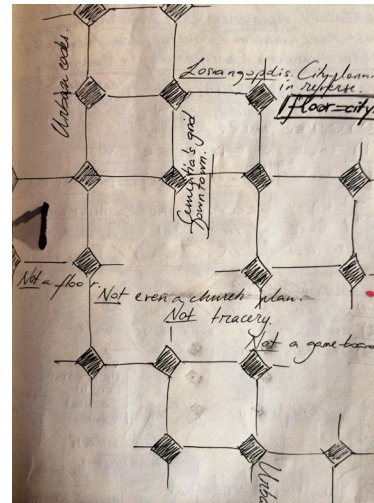 Urban codes.
Losangopolis. City plann
in reverse.
floor=city.
grid
Downtown.
Not a floor.
Not even a church plan.
Not tracery.
Not a game-boar
Urba